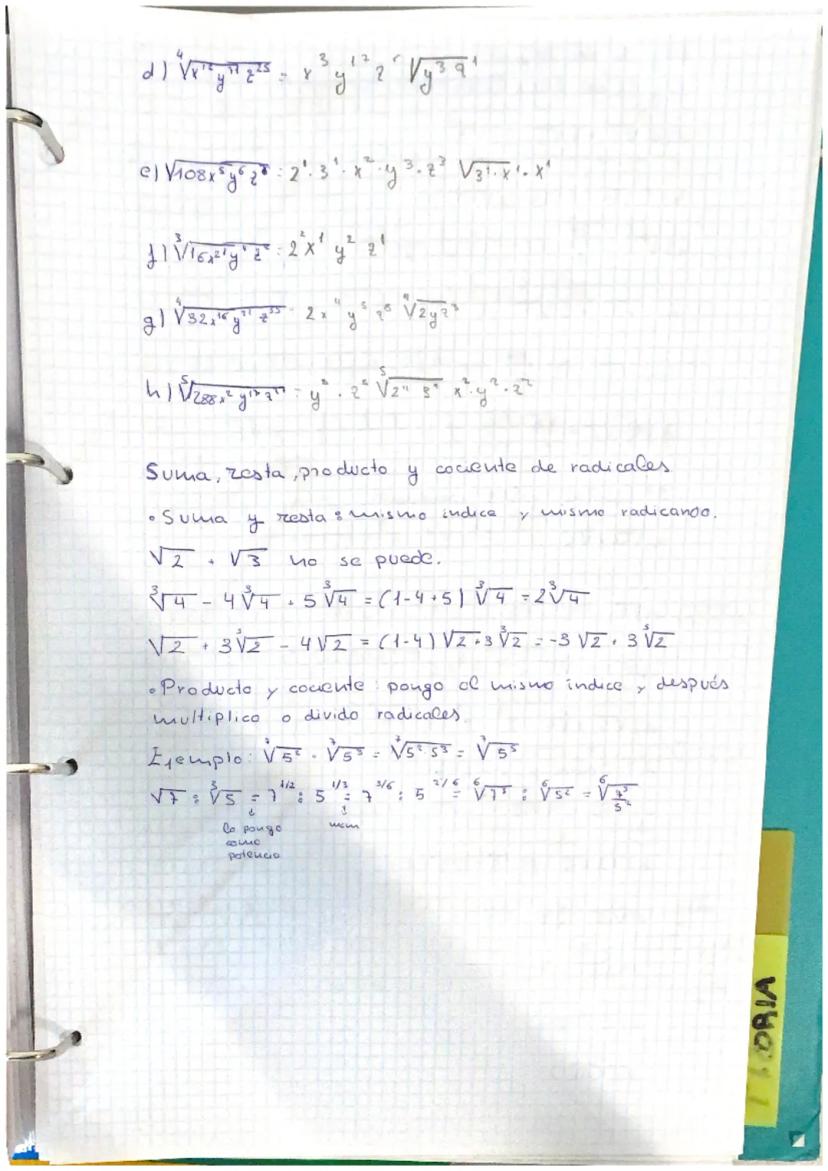 d) ⁴√x¹² y⁷¹ z²⁵ = x³ y¹⁷ z⁶ √y³ q¹
e) √108x⁵y⁶z⁸ = 2¹·3¹·x²·y³·z³ √3¹·x¹·x¹
f) ³√16x²¹y z = 2²x¹ y² z¹
g) ⁴√32x¹⁶y²¹z³⁵ = 2x⁴ y⁵ z⁸ ⁴√2yz³
h) ⁵√288x²y¹⁷z = y³ · z⁵ ⁵√2 3² x²·y²·z²
Suma, resta, producto y cociente de radicales
• Suma y resta: mismo índice y mismo radicando.
√2 + √3 no se puede.
³√4 - 4³√4 + 5³√4 = (1-4+5) ³√4 = 2³√4
√2 + 3³√2 - 4√2 = (1-4)√2+3³√2 = -3√2 + 3³√2
• Producto y cociente: pongo al mismo índice y después
multiplico o divido radicales.
Ejemplo: ⁷√5² · ⁷√5³ = ⁷√5²·5³ = ⁷√5⁵
√7 : ³√5 = 7^1/2 : 5^1/3 = 7^3/6 : 5^2/6 = ⁶√7³ : ⁶√5² = ⁶√7³/5²
↓ ↓
lo pongo mcm
como
potencia
ORIA